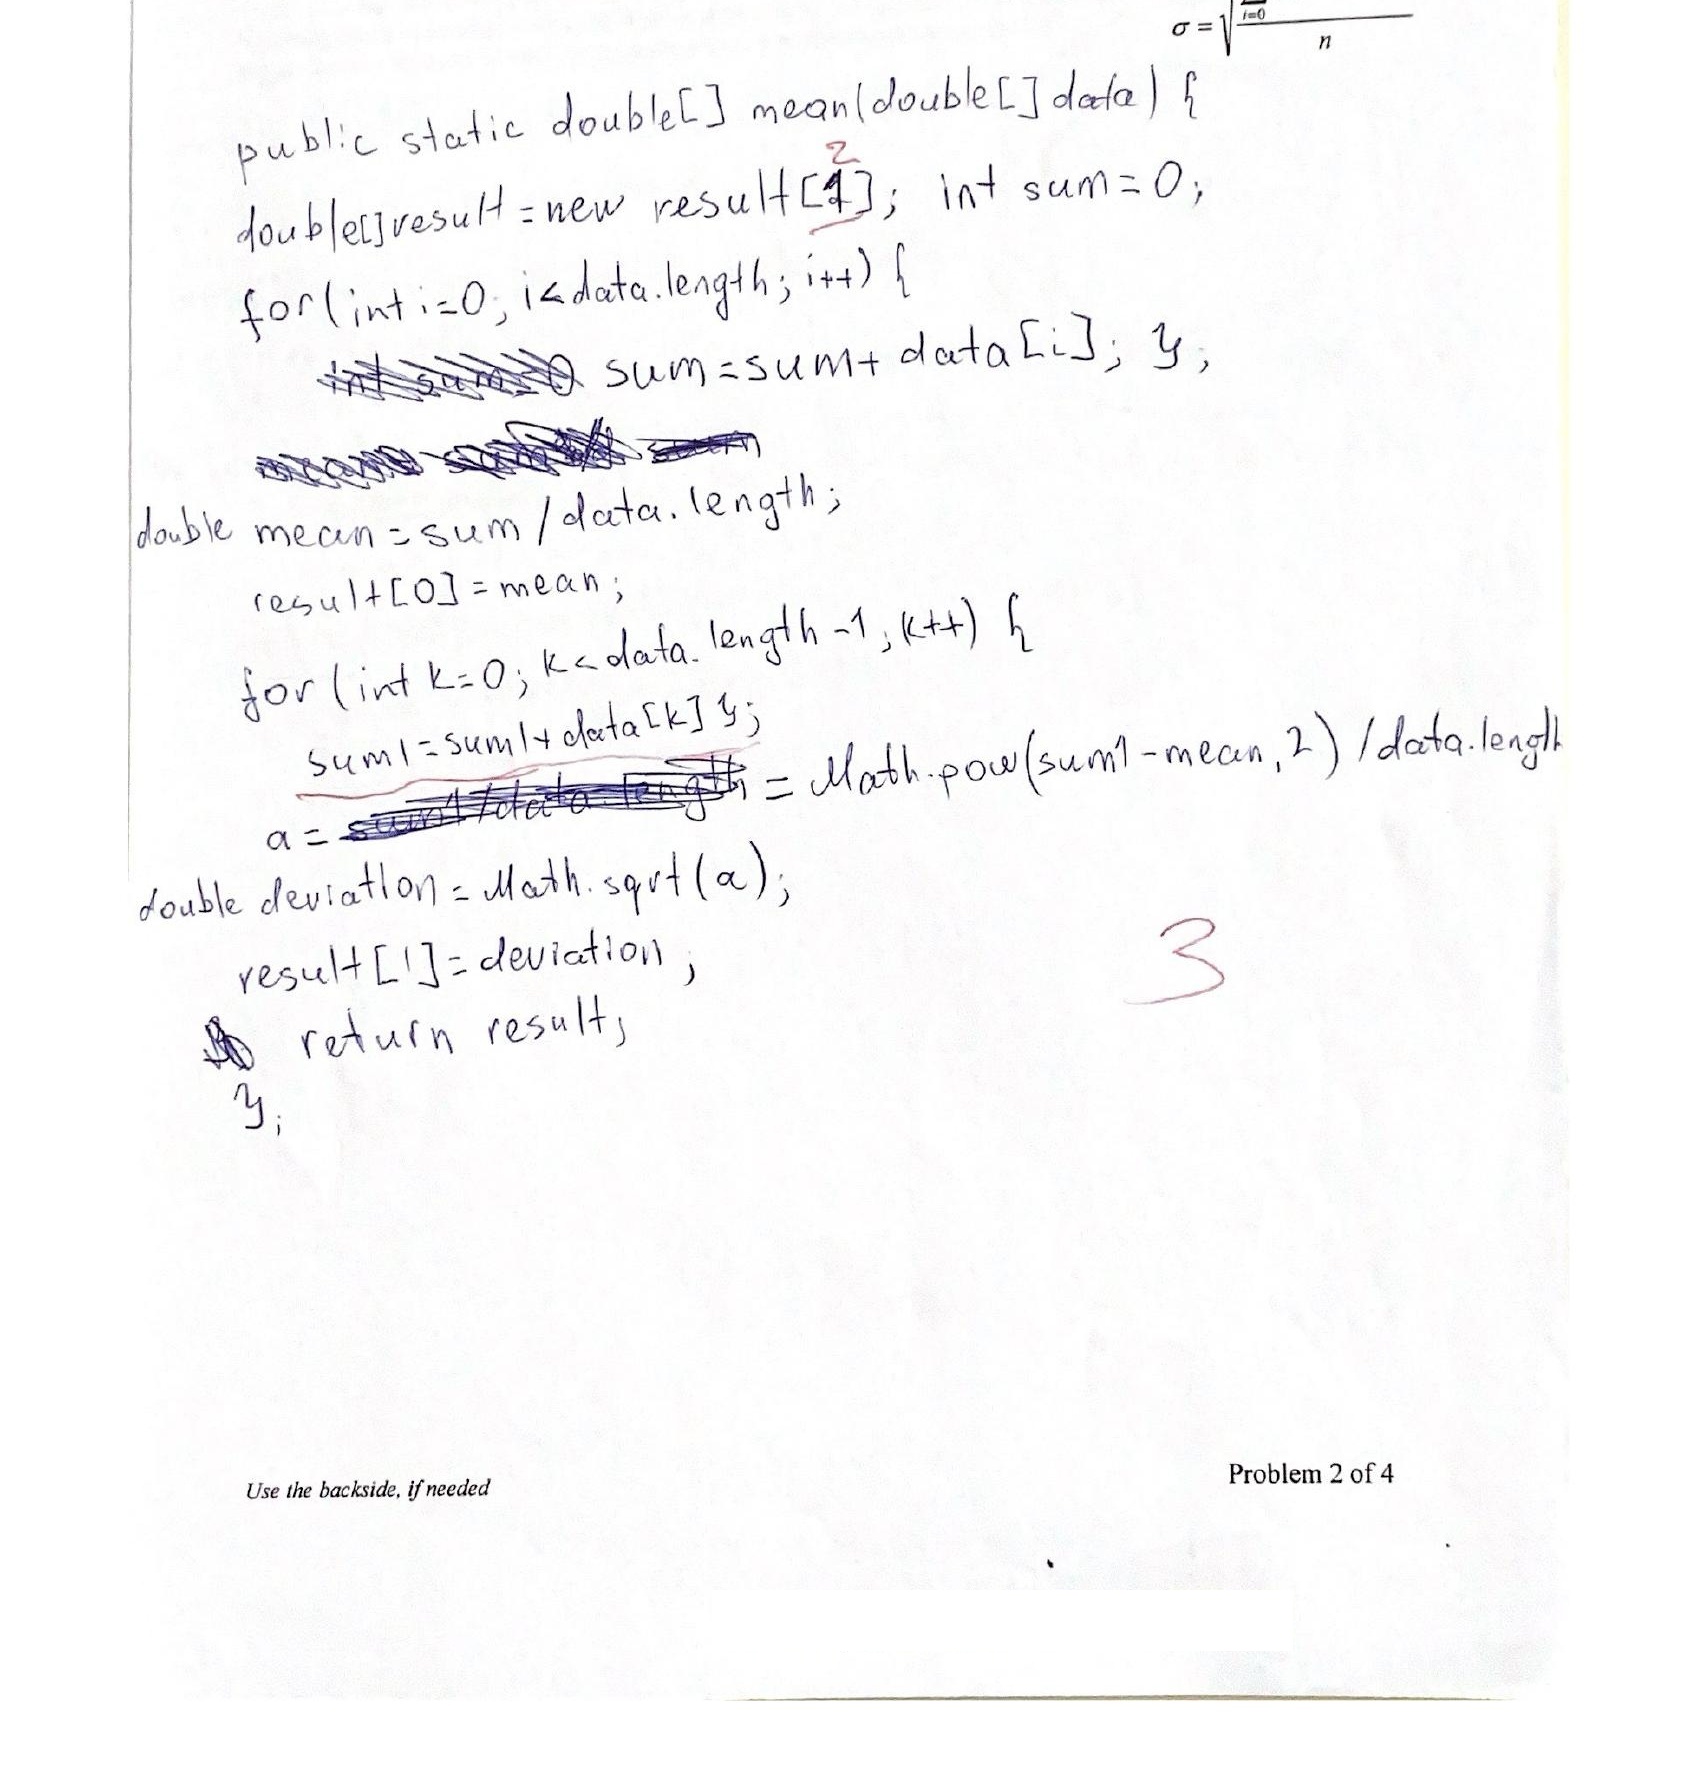 σ = √ i=0
n
public static double[] mean(double[] data) {
2
double[] result = new result[1]; int sum = 0;
for(int i=0; i<data.length; i++) {
int sum=0 sum = sum + data[i]; };
double mean = sum / data.length;
result[0] = mean;
for (int k=0; k<data.length-1; k++) {
sum1 = sum1 + data[k] };
a = sum1/data.length = Math.pow(sum1-mean, 2) / data.length
double deviation = Math.sqrt(a);
result[1] = deviation;
3
return result;
};
Use the backside, if needed
Problem 2 of 4